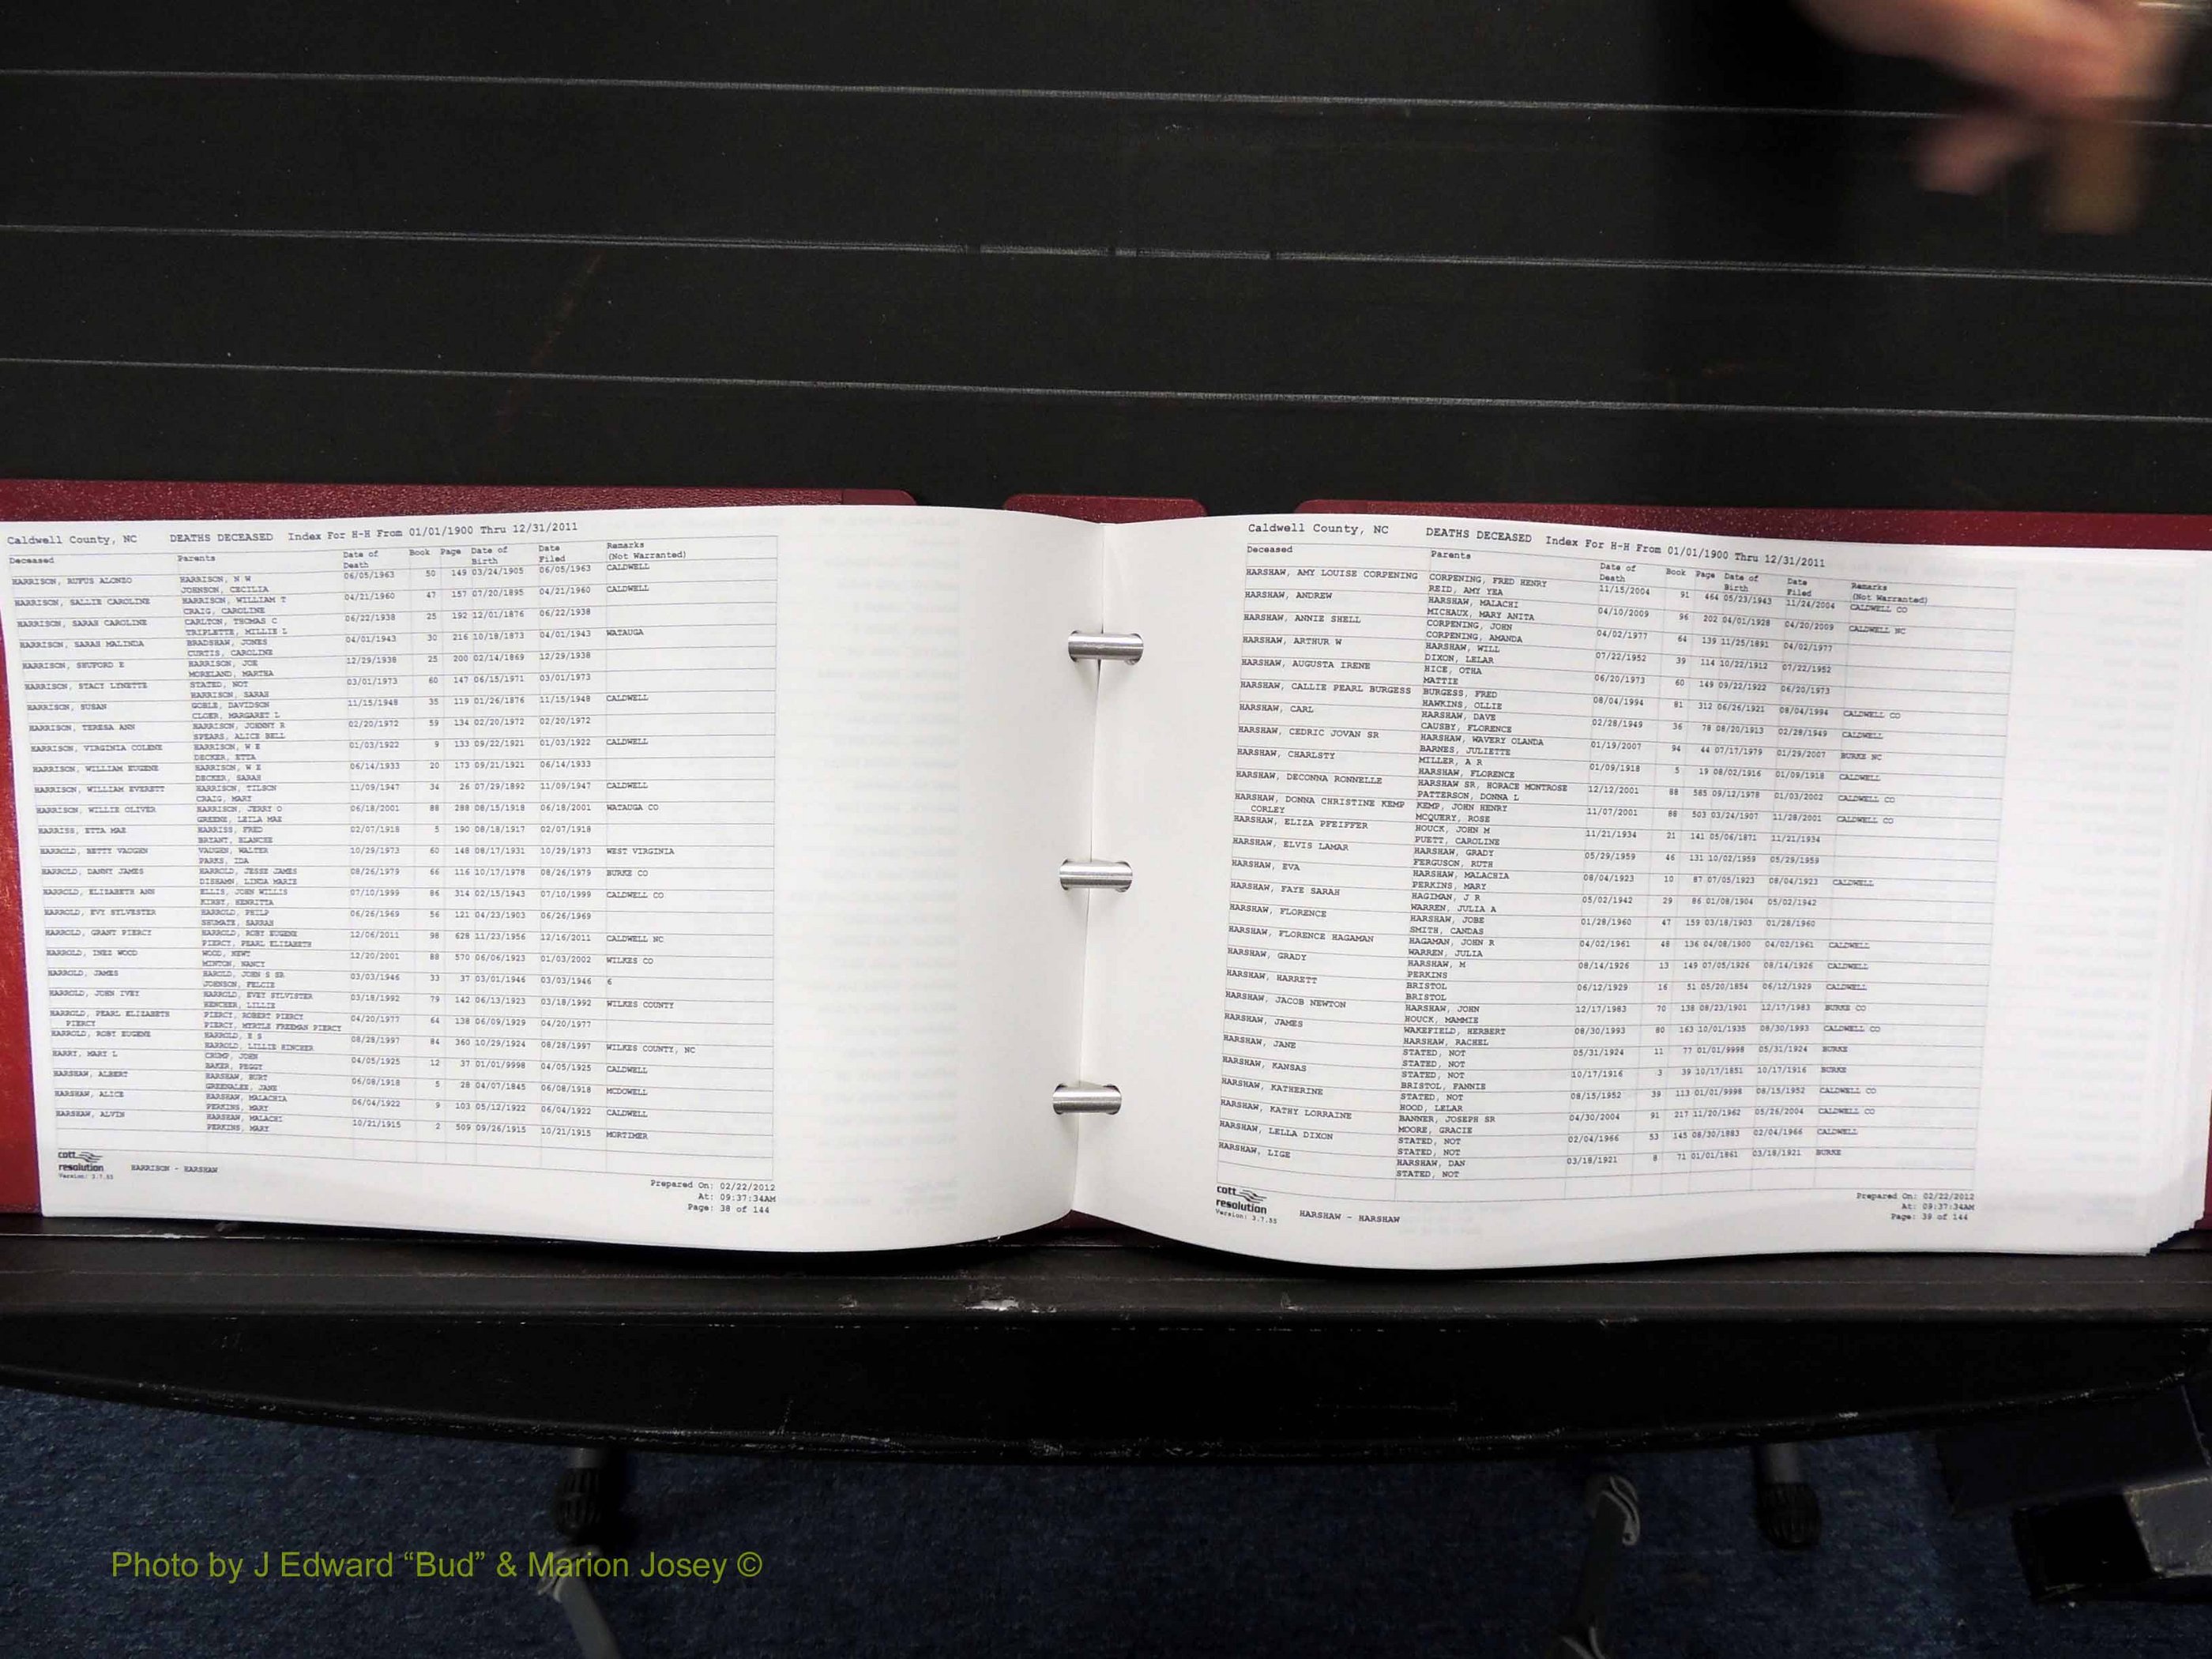 Caldwell County, NC DEATHS DECEASED Index For H-H From 01/01/1900 Thru 12/31/2011
Deceased Parents Date of Death Book Page Date of Birth Date Filed Remarks (Not Warranted)
HARRISON, RUFUS ALONZO HARRISON, N W 06/05/1963 50 149 03/24/1905 06/05/1963 CALDWELL
JOHNSON, CECILIA
HARRISON, SALLIE CAROLINE HARRISON, WILLIAM T 04/21/1960 47 157 07/20/1895 04/21/1960 CALDWELL
CRAIG, CAROLINE
HARRISON, SARAH CAROLINE CARLTON, THOMAS C 06/22/1938 25 192 12/01/1876 06/22/1938
TRIPLETTE, MILLIE L
HARRISON, SARAH MALINDA BRADSHAW, JONES 04/01/1943 30 216 10/18/1873 04/01/1943 WATAUGA
CURTIS, CAROLINE
HARRISON, SHUFORD E HARRISON, JOE 12/29/1938 25 200 02/14/1869 12/29/1938
MORELAND, MARTHA
HARRISON, STACY LYNETTE STATED, NOT 03/01/1973 60 147 06/15/1971 03/01/1973
HARRISON, SARAH
HARRISON, SUSAN GOBLE, DAVIDSON 11/15/1948 35 119 01/26/1876 11/15/1948 CALDWELL
CLOER, MARGARET L
HARRISON, TERESA ANN HARRISON, JOHNNY R 02/20/1972 59 134 02/20/1972 02/20/1972
SPEARS, ALICE BELL
HARRISON, VIRGINIA COLENE HARRISON, W E 01/03/1922 9 133 09/22/1921 01/03/1922 CALDWELL
DECKER, ETTA
HARRISON, WILLIAM EUGENE HARRISON, W E 06/14/1933 20 173 09/21/1921 06/14/1933
DECKER, SARAH
HARRISON, WILLIAM EVERETT HARRISON, TILSON 11/09/1947 34 26 07/29/1892 11/09/1947 CALDWELL
CRAIG, MARY
HARRISON, WILLIE OLIVER HARRISON, JERRY O 06/18/2001 88 288 08/15/1918 06/18/2001 WATAUGA CO
GREENE, LEILA MAE
HARRISS, ETTA MAE HARRISS, FRED 02/07/1918 5 190 08/18/1917 02/07/1918
BRYANT, BLANCHE
HARROLD, BETTY VAUGHN VAUGHN, WALTER 10/29/1973 60 148 08/17/1931 10/29/1973 WEST VIRGINIA
PARKS, IDA
HARROLD, DANNY JAMES HARROLD, JESSE JAMES 08/26/1979 66 116 10/17/1978 08/26/1979 BURKE CO
DISHAMN, LINDA MARIE
HARROLD, ELIZABETH ANN ELLIS, JOHN WILLIS 07/10/1999 86 314 02/15/1943 07/10/1999 CALDWELL CO
KIRBY, HENRITTA
HARROLD, EVY SYLVESTER HARROLD, PHILP 06/26/1969 56 121 04/23/1903 06/26/1969
SHUMATE, SARRAH
HARROLD, GRANT PIERCY HARROLD, ROBY EUGENE 12/06/2011 98 628 11/23/1956 12/16/2011 CALDWELL NC
PIERCY, PEARL ELIZABETH
HARROLD, INEZ WOOD WOOD, NEWT 12/20/2001 88 570 06/06/1923 01/03/2002 WILKES CO
MINTON, NANCY
HARROLD, JAMES HAROLD, JOHN S SR 03/03/1946 33 37 03/01/1946 03/03/1946 6
JOHNSON, FELCIE
HARROLD, JOHN IVEY HARROLD, EVEY SYLVISTER 03/18/1992 79 142 06/13/1923 03/18/1992 WILKES COUNTY
HENCHER, LILLIE
HARROLD, PEARL ELIZABETH PIERCY, ROBERT PIERCY 04/20/1977 64 138 06/09/1929 04/20/1977
PIERCY PIERCY, MYRTLE FREEMAN PIERCY
HARROLD, ROBY EUGENE HARROLD, E S 08/28/1997 84 360 10/29/1924 08/28/1997 WILKES COUNTY, NC
HARROLD, LILLIE HINCHER
HARRY, MARY L CRUMP, JOHN 04/05/1925 12 37 01/01/9998 04/05/1925 CALDWELL
BAKER, PEGGY
HARSHAW, ALBERT HARSHAW, BURT 06/08/1918 5 28 04/07/1845 06/08/1918 MCDOWELL
GREENALEE, JANE
HARSHAW, ALICE HARSHAW, MALACHIA 06/04/1922 9 103 05/12/1922 06/04/1922 CALDWELL
PERKINS, MARY
HARSHAW, ALVIN HARSHAW, MALACHI 10/21/1915 2 509 09/26/1915 10/21/1915 MORTIMER
PERKINS, MARY
cott
resolution HARRISON - HARSHAW
Version: 3.7.55
Prepared On: 02/22/2012
At: 09:37:34AM
Page: 38 of 144
Caldwell County, NC DEATHS DECEASED Index For H-H From 01/01/1900 Thru 12/31/2011
Deceased Parents Date of Death Book Page Date of Birth Date Filed Remarks (Not Warranted)
HARSHAW, AMY LOUISE CORPENING CORPENING, FRED HENRY 11/15/2004 91 464 05/23/1943 11/24/2004 CALDWELL CO
REID, AMY YEA
HARSHAW, ANDREW HARSHAW, MALACHI 04/10/2009 96 202 04/01/1928 04/20/2009 CALDWELL NC
MICHAUX, MARY ANITA
HARSHAW, ANNIE SHELL CORPENING, JOHN 04/02/1977 64 139 11/25/1891 04/02/1977
CORPENING, AMANDA
HARSHAW, ARTHUR W HARSHAW, WILL 07/22/1952 39 114 10/22/1912 07/22/1952
DIXON, LELAR
HARSHAW, AUGUSTA IRENE HICE, OTHA 06/20/1973 60 149 09/22/1922 06/20/1973
MATTIE
HARSHAW, CALLIE PEARL BURGESS BURGESS, FRED 08/04/1994 81 312 06/26/1921 08/04/1994 CALDWELL CO
HAWKINS, OLLIE
HARSHAW, CARL HARSHAW, DAVE 02/28/1949 36 78 08/20/1913 02/28/1949 CALDWELL
CAUSBY, FLORENCE
HARSHAW, CEDRIC JOVAN SR HARSHAW, WAVERY OLANDA 01/19/2007 94 44 07/17/1979 01/29/2007 BURKE NC
BARNES, JULIETTE
HARSHAW, CHARLSTY MILLER, A R 01/09/1918 5 19 08/02/1916 01/09/1918 CALDWELL
HARSHAW, FLORENCE
HARSHAW, DECONNA RONNELLE HARSHAW SR, HORACE MONTROSE 12/12/2001 88 585 09/12/1978 01/03/2002 CALDWELL CO
PATTERSON, DONNA L
HARSHAW, DONNA CHRISTINE KEMP KEMP, JOHN HENRY 11/07/2001 88 503 03/24/1907 11/28/2001 CALDWELL CO
CORLEY MCQUERY, ROSE
HARSHAW, ELIZA PFEIFFER HOUCK, JOHN M 11/21/1934 21 141 05/06/1871 11/21/1934
PUETT, CAROLINE
HARSHAW, ELVIS LAMAR HARSHAW, GRADY 05/29/1959 46 131 10/02/1959 05/29/1959
FERGUSON, RUTH
HARSHAW, EVA HARSHAW, MALACHIA 08/04/1923 10 87 07/05/1923 08/04/1923 CALDWELL
PERKINS, MARY
HARSHAW, FAYE SARAH HAGIMAN, J R 05/02/1942 29 86 01/08/1904 05/02/1942
WARREN, JULIA A
HARSHAW, FLORENCE HARSHAW, JOBE 01/28/1960 47 159 03/18/1903 01/28/1960
SMITH, CANDAS
HARSHAW, FLORENCE HAGAMAN HAGAMAN, JOHN R 04/02/1961 48 136 04/08/1900 04/02/1961 CALDWELL
WARREN, JULIA
HARSHAW, GRADY HARSHAW, M 08/14/1926 13 149 07/05/1926 08/14/1926 CALDWELL
PERKINS
HARSHAW, HARRETT BRISTOL 06/12/1929 16 51 05/20/1854 06/12/1929 CALDWELL
BRISTOL
HARSHAW, JACOB NEWTON HARSHAW, JOHN 12/17/1983 70 138 08/23/1901 12/17/1983 BURKE CO
HOUCK, MAMMIE
HARSHAW, JAMES WAKEFIELD, HERBERT 08/30/1993 80 163 10/01/1935 08/30/1993 CALDWELL CO
HARSHAW, RACHEL
HARSHAW, JANE STATED, NOT 05/31/1924 11 77 01/01/9998 05/31/1924 BURKE
STATED, NOT
HARSHAW, KANSAS STATED, NOT 10/17/1916 3 39 10/17/1851 10/17/1916 BURKE
BRISTOL, FANNIE
HARSHAW, KATHERINE STATED, NOT 08/15/1952 39 113 01/01/9998 08/15/1952 CALDWELL CO
HOOD, LELAR
HARSHAW, KATHY LORRAINE BANNER, JOSEPH SR 04/30/2004 91 217 11/20/1962 05/26/2004 CALDWELL CO
MOORE, GRACIE
HARSHAW, LELLA DIXON STATED, NOT 02/04/1966 53 145 08/30/1883 02/04/1966 CALDWELL
STATED, NOT
HARSHAW, LIGE HARSHAW, DAN 03/18/1921 8 71 01/01/1861 03/18/1921 BURKE
STATED, NOT
cott
resolution HARSHAW - HARSHAW
Version: 3.7.55
Prepared On: 02/22/2012
At: 09:37:34AM
Page: 39 of 144
Photo by J Edward “Bud” & Marion Josey ©